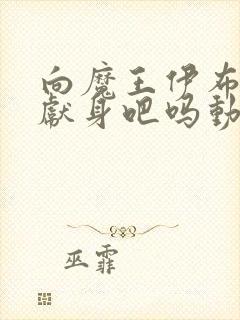 向魔王伊布
獻身吧吗動
巫霏